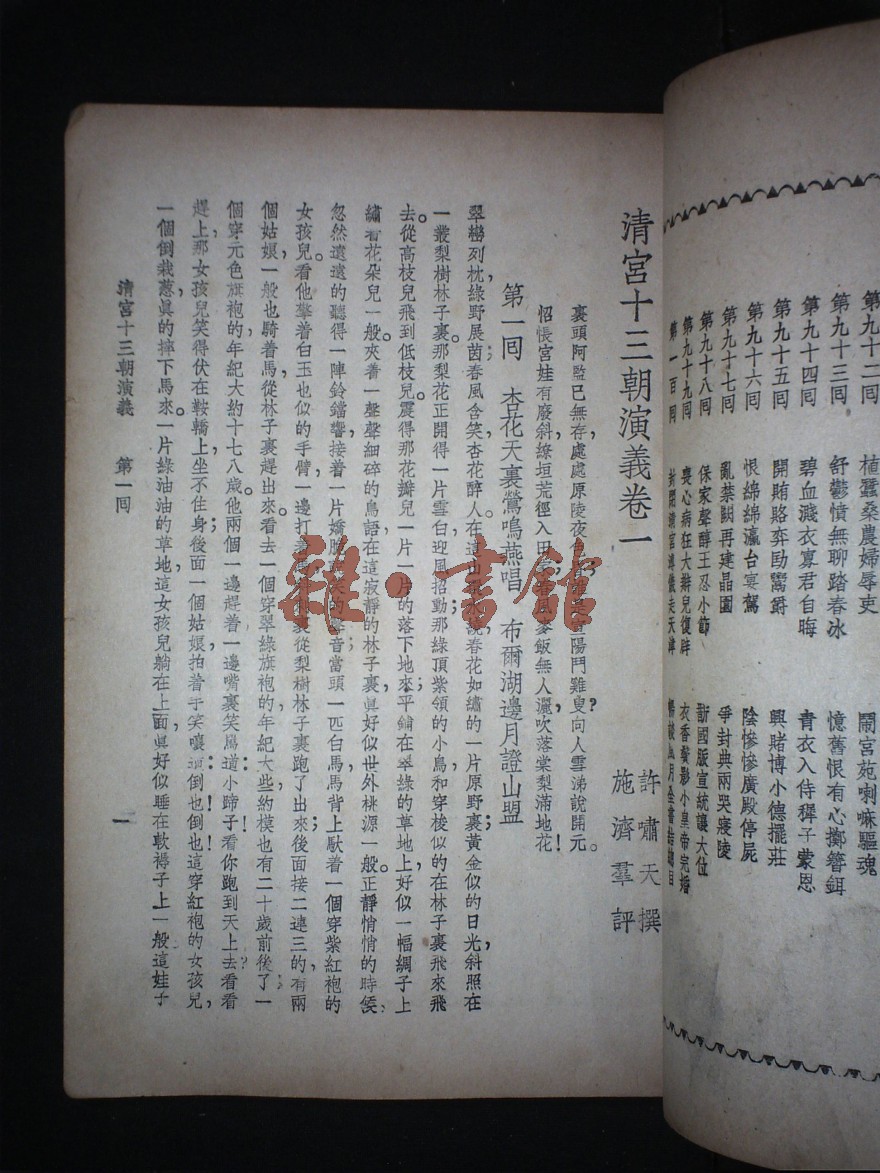 第九十二回 植蠶桑農婦辱吏 鬧宮苑喇嘛驅魂
第九十三回 舒鬱憤無聊踏春冰 憶舊恨有心擲簪鉺
第九十四回 碧血濺衣寡君自晦 青衣入侍穉子蒙恩
第九十五回 開賄賂奕劻鬻爵 興賭博小德擺莊
第九十六回 恨綿綿瀛台宴駕 陰慘慘廣殿停屍
第九十七回 亂禁闕再建晶園 爭封典兩哭寢陵
第九十八回 保家聲醇王忍小節 國服宣統讓大位
第九十九回 喪心病狂大辮兒復辟 衣香鬢影小皇帝完婚
第一百回 封閉清宮溥儀走天津
清宮十三朝演義卷一
許嘯天撰
施濟羣評
裹頭阿監已無存，處處原陵夜 宣陽門難叟？向人雪涕說開元。
怊悵宮娃有廢斜，繚垣荒徑入田 麥飯無人灑，吹落棠梨滿地花！
第一回 杏花天裏鶯鳴燕唱 布爾湖邊月證山盟
翠巒列枕，綠野展茵；春風含笑，杏花醉人。在這山 春花如繡的一片原野裏，黃金似的日光，斜照在
一叢梨樹林子裏；那梨花正開得一片雪白，迎風招動。那綠頂紫領的小鳥，和穿梭似的在林子裏飛來飛
去。從高枝兒飛到低枝兒，震得那花瓣兒一片一片的落下地來，平鋪在翠綠的草地上，好似一幅綢子上
繡着花朵兒一般。夾着一聲聲細碎的鳥語，在這寂靜的林子裏，眞好似世外桃源一般。正靜悄悄的時候，
忽然遠遠的聽得一陣鈴鐺響，接着一片嬌脆 笑的聲音，當頭一匹白馬，馬背上馱着一個穿紫紅袍的
女孩兒。看他擎着白玉也似的手臂，一邊打着馬， 裏從梨樹林子裏跑了出來；後面接二連三的有兩
個姑娘，一般也騎着馬從林子裏趕出來。看去，一個穿翠綠旗袍的，年紀大些，約模也有二十歲前後了；一
個穿元色旗袍的，年紀大約十七八歲。他兩個一邊趕着，一邊嘴裏笑罵道：小蹄子！看你跑到天上去？看看
趕上，那女孩兒笑得伏在鞍轎上，坐不住身；後面一個姑娘拍着手，笑嚷道：倒也！倒也！這穿紅袍的女孩兒，
一個倒栽蔥，眞的摔下馬來。一片綠油油的草地，這女孩兒躺在上面，眞好似睡在軟褥子上一般。這娃子
清宮十三朝演義 第一回 一
雜·書館